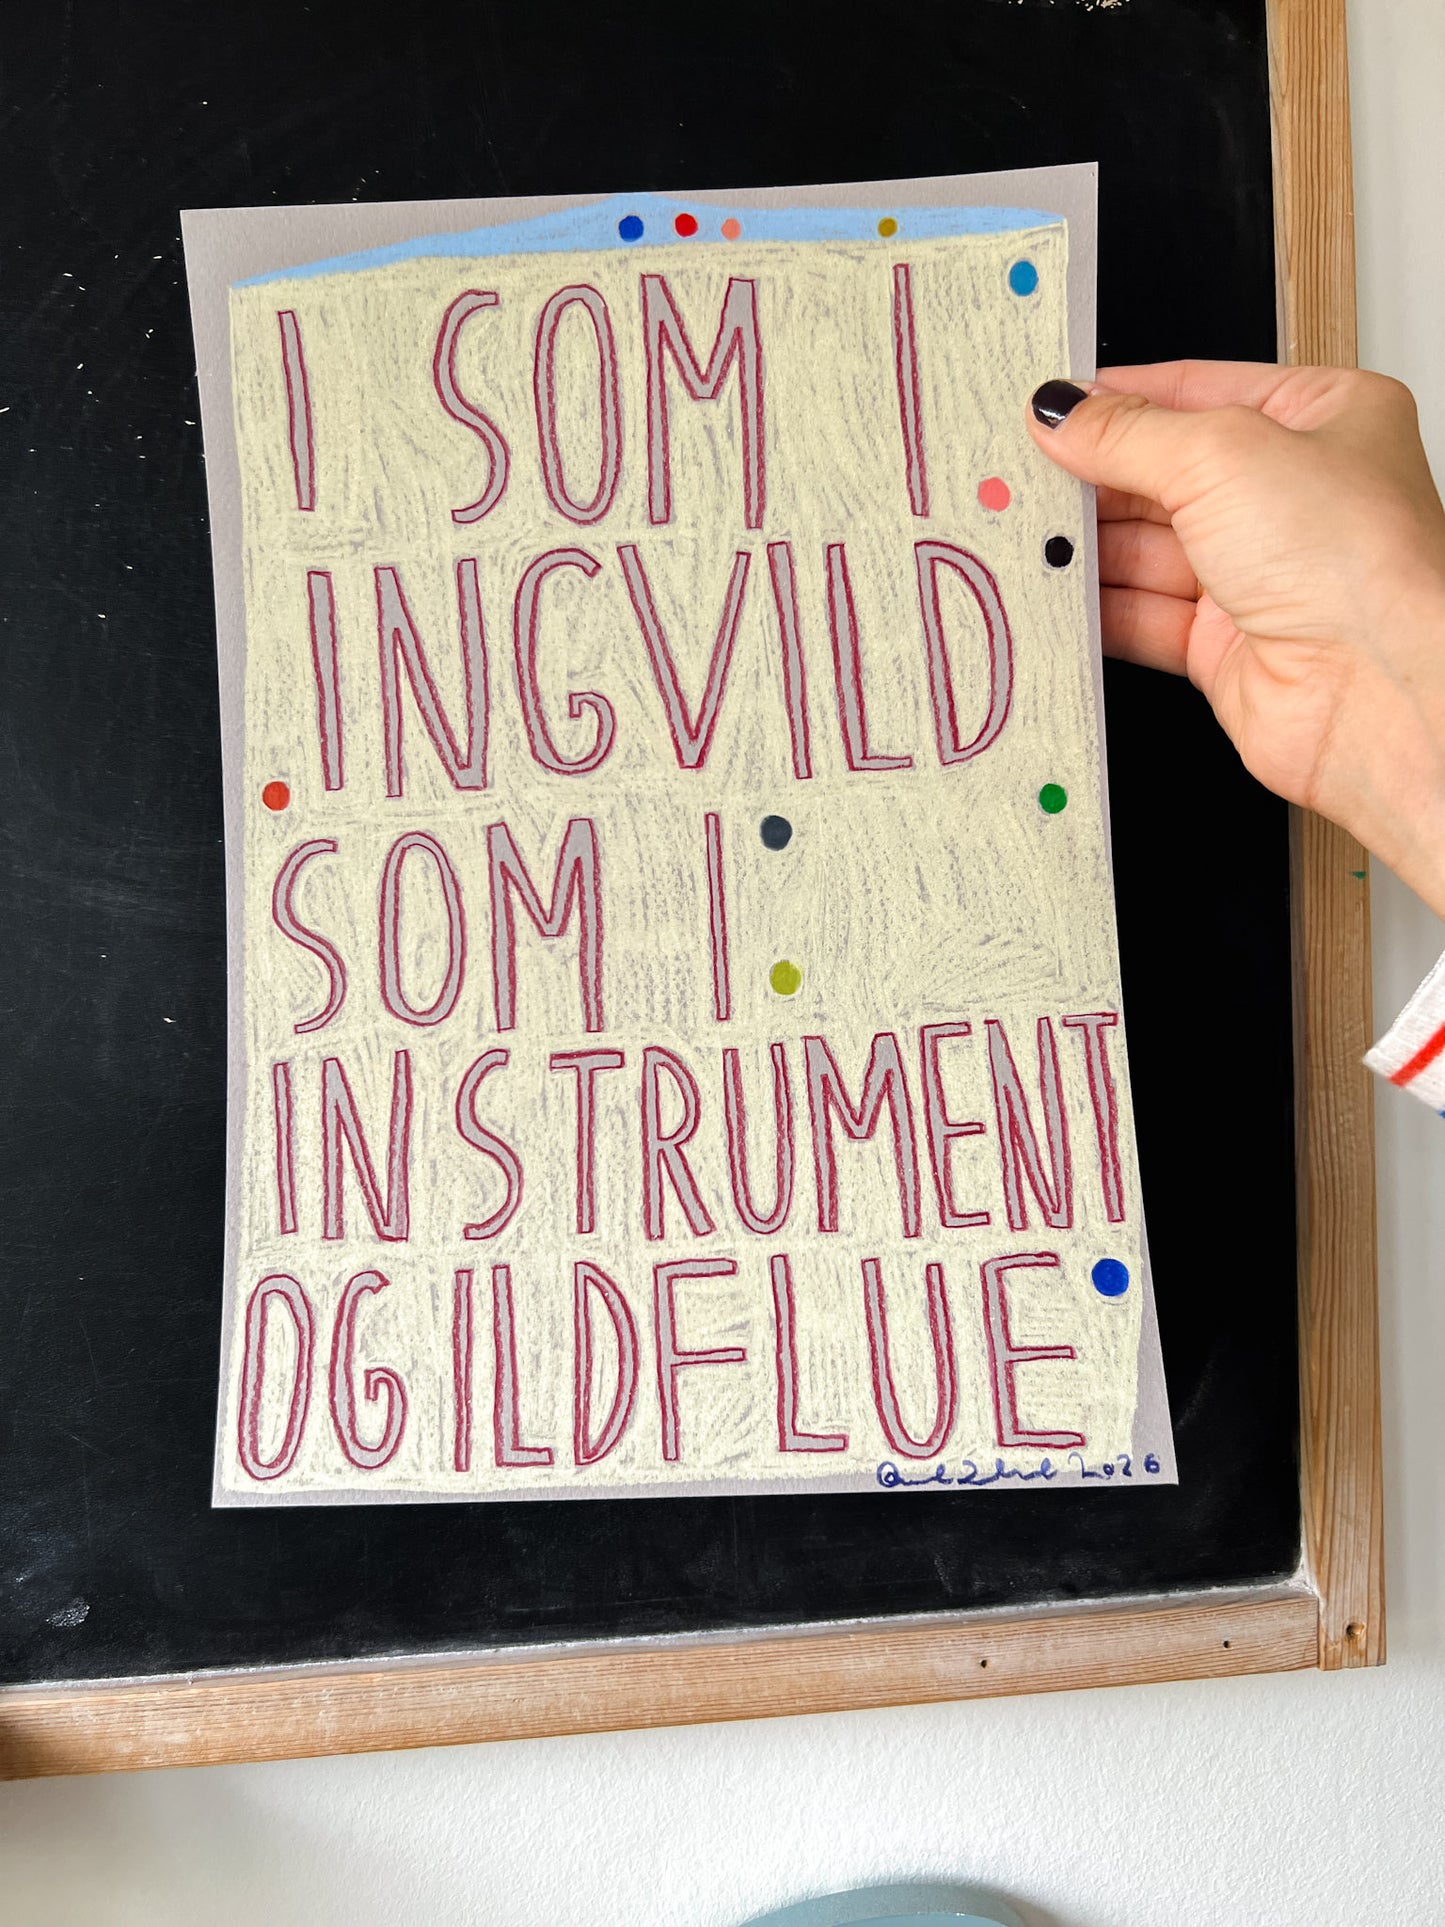 I SOM I
INGVILD
SOM I
INSTRUMENT
OG ILDFLUE
2026